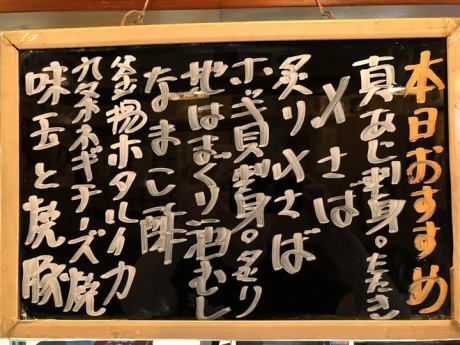 本日おすすめ
真あじ刺身。たたき
〆さば
炙り〆さば
ホッキ貝刺身。炙り
地はまぐり酒むし
なまこ酢
釜揚ホタルイカ
九条ネギチーズ焼
味玉と焼豚